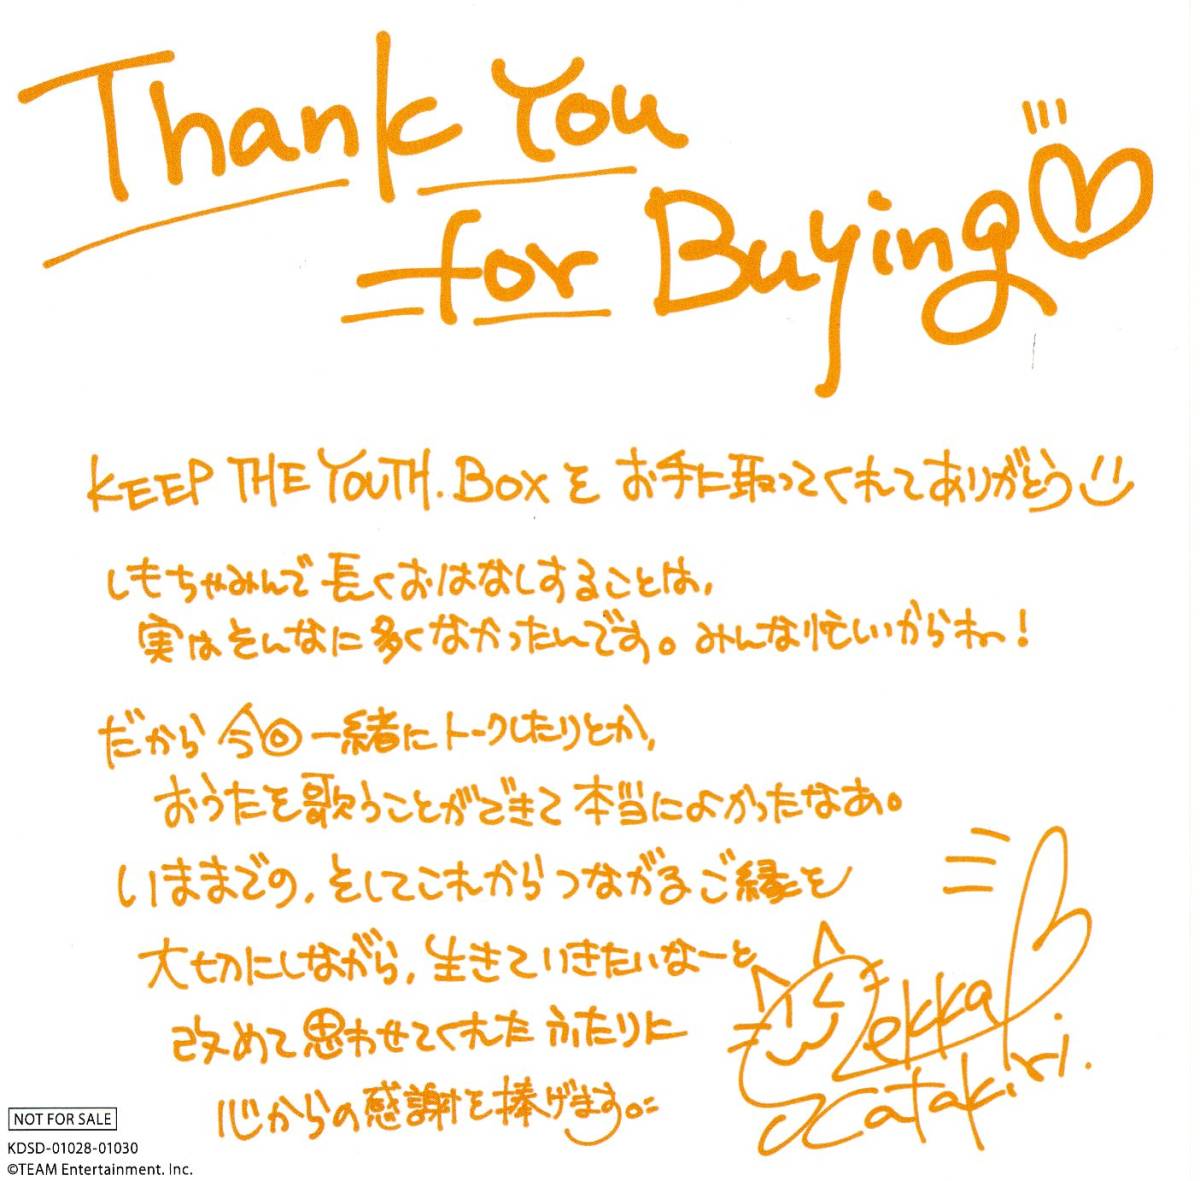 Thank You
for Buying
KEEP THE YOUTH. BOX を お手に取ってくれてありがとう
しもちゃみんで長くおはなしすることは,
実はそんなに多くなかったんです。みんな忙しいからねー!
だから今回一緒にトークしたりとか,
おうたを歌うことができて本当によかったなあ。
いままでの,そしてこれからつながるご縁を
大切にしながら,生きていきたいなーと
改めて思わせてくれたふたりに
心からの感謝を捧げます。
Rekka Katakiri.
NOT FOR SALE
KDSD-01028-01030
©TEAM Entertainment. Inc.